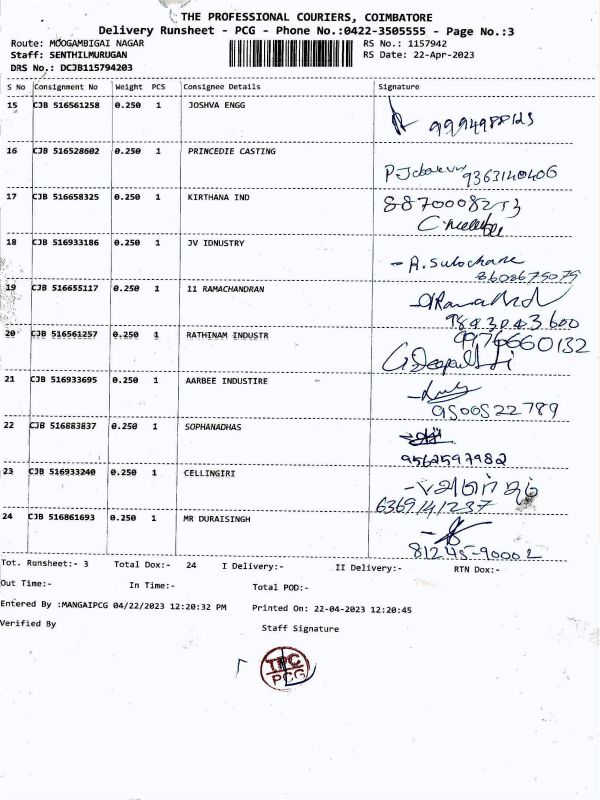 THE PROFESSIONAL COURIERS, COIMBATORE
Delivery Runsheet - PCG - Phone No.:0422-3505555 - Page No.:3
Route: MOOGAMBIGAI NAGAR
RS No.: 1157942
Staff: SENTHILMURUGAN
RS Date: 22-Apr-2023
DRS No.: DCJB115794203
S No Consignment No Weight PCS Consignee Details Signature
15 CJB 516561258 0.250 1 JOSHVA ENGG
16 CJB 516528602 0.250 1 PRINCEDIE CASTING
9363140406
17 CJB 516658325 0.250 1 KIRTHANA IND
8870008253
18 CJB 516933186 0.250 1 JV IDNUSTRY
- A. Sulochana
8608675075
19 CJB 516655117 0.250 1 11 RAMACHANDRAN
9843043600
20 CJB 516561257 0.250 1 RATHINAM INDUSTR
9976660132
21 CJB 516933695 0.250 1 AARBEE INDUSTIRE
9500522789
22 CJB 516883837 0.250 1 SOPHANADHAS
9562597982
23 CJB 516933240 0.250 1 CELLINGIRI
6369141237
24 CJB 516861693 0.250 1 MR DURAISINGH
81245-90002
Tot. Runsheet:- 3 Total Dox:- 24 I Delivery:- II Delivery:- RTN Dox:-
Out Time:- In Time:- Total POD:-
Entered By :MANGAIPCG 04/22/2023 12:20:32 PM Printed On: 22-04-2023 12:20:45
Verified By Staff Signature
TPC
PCG